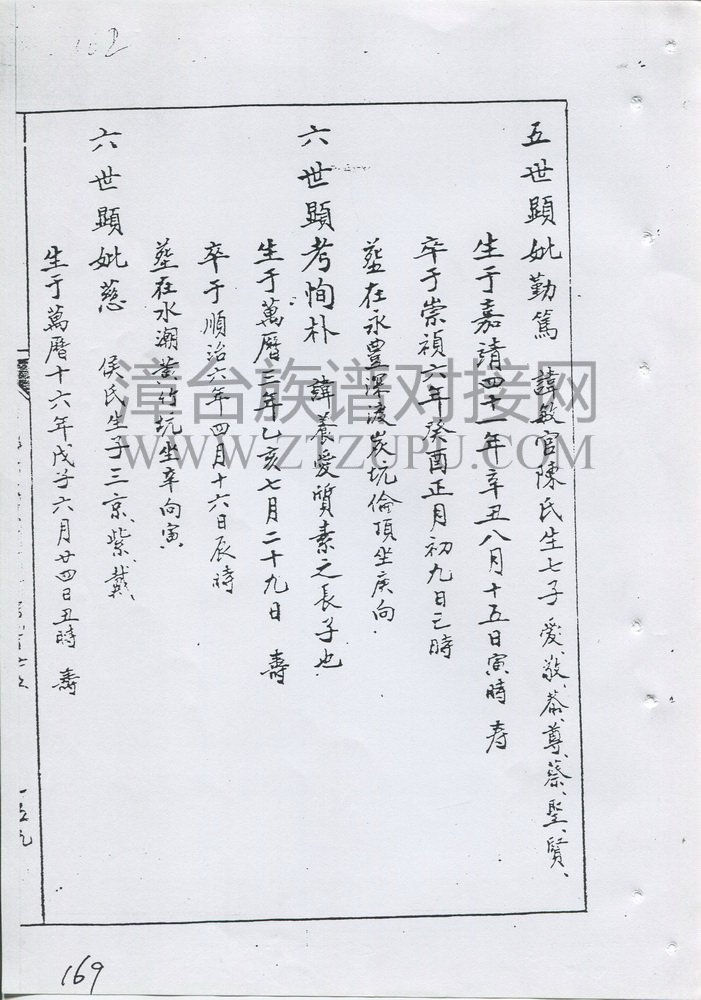 五世顯妣勤篤 諱敏官陳氏生七子愛、敬、恭、尊、蔡、聖、賢、
生于嘉靖四十一年辛丑八月十五日寅時 寿
卒于崇禎六年癸酉正月初九日巳時
墓在永豊渡炭坑倫頂坐庚向
六世顯考恂朴 諱養愛質素之長子也
生于萬曆三年乙亥七月二十九日 壽
卒于順治六年四月十六日辰時
墓在水潮黄竹坑坐辛向寅
六世顯妣慈 侯氏生子三京、紫、戴、
生于萬曆十六年戊子六月廿四日丑時 壽
一五九
169
漳台族谱对接网
WWW.ZTZUPU.COM